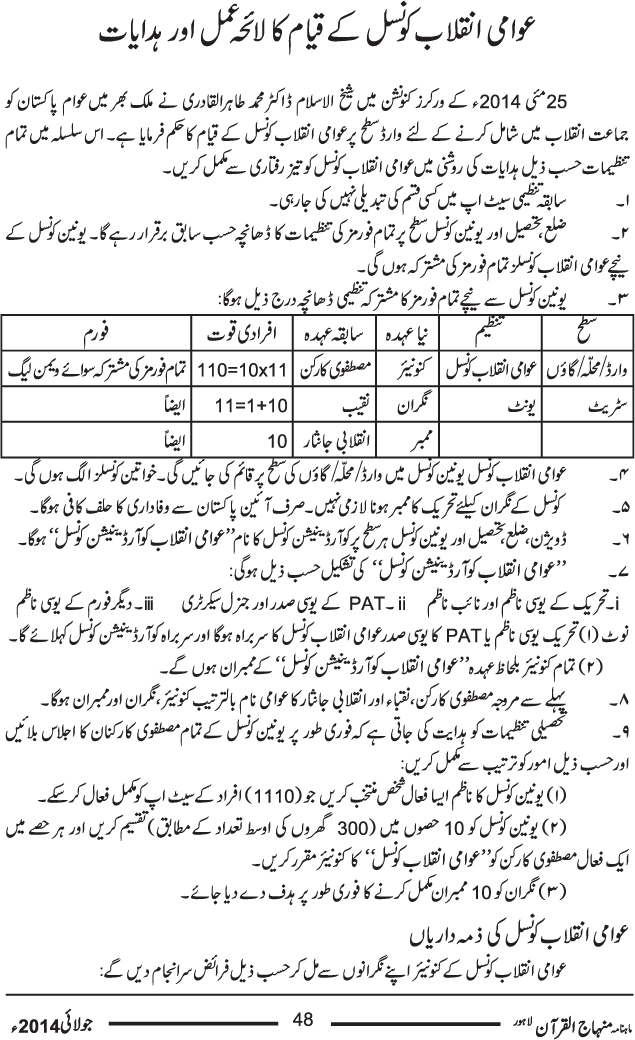 عوامی انقلاب کونسل کے قیام کا لائحہ عمل اور ہدایات
25 مئی 2014ء کے ورکرز کنونشن میں شیخ الاسلام ڈاکٹر محمد طاہرالقادری نے ملک بھر میں عوام پاکستان کو
جماعت انقلاب میں شامل کرنے کے لئے وارڈ سطح پر عوامی انقلاب کونسل کے قیام کا حکم فرمایا ہے۔ اس سلسلہ میں تمام
تنظیمات حسب ذیل ہدایات کی روشنی میں عوامی انقلاب کونسل کو تیز رفتاری سے مکمل کریں۔
۱۔ سابقہ تنظیمی سیٹ اپ میں کسی قسم کی تبدیلی نہیں کی جا رہی۔
۲۔ ضلع، تحصیل اور یونین کونسل سطح پر تمام فورمز کی تنظیمات کا ڈھانچہ حسب سابق برقرار رہے گا۔ یونین کونسل کے
نیچے عوامی انقلاب کونسلز تمام فورمز کی مشترکہ ہوں گی۔
۳۔ یونین کونسل سے نیچے تمام فورمز کا مشترکہ تنظیمی ڈھانچہ درج ذیل ہوگا:
سطح تنظیم نیا عہدہ سابقہ عہدہ افرادی قوت فورم
وارڈ/محلّہ/گاؤں عوامی انقلاب کونسل کنونیئر مصطفوی کارکن 110=10x11 تمام فورمز کی مشترکہ سوائے ویمن لیگ
سٹریٹ یونٹ نگران نقیب 11=1+10 ایضاً
ممبر انقلابی جانثار 10 ایضاً
۴۔ عوامی انقلاب کونسل یونین کونسل میں وارڈ/محلّہ/گاؤں کی سطح پر قائم کی جائیں گی۔ خواتین کونسلز الگ ہوں گی۔
۵۔ کونسل کے نگران کیلئے تحریک کا ممبر ہونا لازمی نہیں۔ صرف آئین پاکستان سے وفاداری کا حلف کافی ہوگا۔
۶۔ ڈویژن، ضلع، تحصیل اور یونین کونسل ہر سطح پر کوآرڈینیشن کونسل کا نام ’’عوامی انقلاب کوآرڈینیشن کونسل‘‘ ہوگا۔
۷۔ ’’عوامی انقلاب کوآرڈینیشن کونسل‘‘ کی تشکیل حسب ذیل ہوگی:
i۔ تحریک کے یوسی ناظم اور نائب ناظم ii۔ PAT کے یوسی صدر اور جنرل سیکرٹری iii۔ دیگر فورم کے یوسی ناظم
نوٹ (۱) تحریک یوسی ناظم یا PAT کا یوسی صدر عوامی انقلاب کونسل کا سربراہ ہوگا اور سربراہ کوآرڈینیشن کونسل کہلائے گا۔
(۲) تمام کنونیئر بلحاظ عہدہ ’’عوامی انقلاب کوآرڈینیشن کونسل‘‘ کے ممبران ہوں گے۔
۸۔ پہلے سے مروجہ مصطفوی کارکن، نقباء اور انقلابی جانثار کا عوامی نام بالترتیب کنونیئر، نگران اور ممبران ہوگا۔
۹۔ تحصیلی تنظیمات کو ہدایت کی جاتی ہے کہ فوری طور پر یونین کونسل کے تمام مصطفوی کارکنان کا اجلاس بلائیں
اور حسب ذیل امور کو ترتیب سے مکمل کریں:
(۱) یونین کونسل کا ناظم ایسا فعال شخص منتخب کریں جو (1110) افراد کے سیٹ اپ کو مکمل فعال کر سکے۔
(۲) یونین کونسل کو 10 حصوں میں (300 گھروں کی اوسط تعداد کے مطابق) تقسیم کریں اور ہر حصے میں
ایک فعال مصطفوی کارکن کو ’’عوامی انقلاب کونسل‘‘ کا کنونیئر مقرر کریں۔
(۳) نگران کو 10 ممبران مکمل کرنے کا فوری طور پر ہدف دے دیا جائے۔
عوامی انقلاب کونسل کی ذمہ داریاں
عوامی انقلاب کونسل کے کنونیئر اپنے نگرانوں سے مل کر حسب ذیل فرائض سرانجام دیں گے:
ماہنامہ منہاج القرآن لاہور 48 جولائی 2014ء